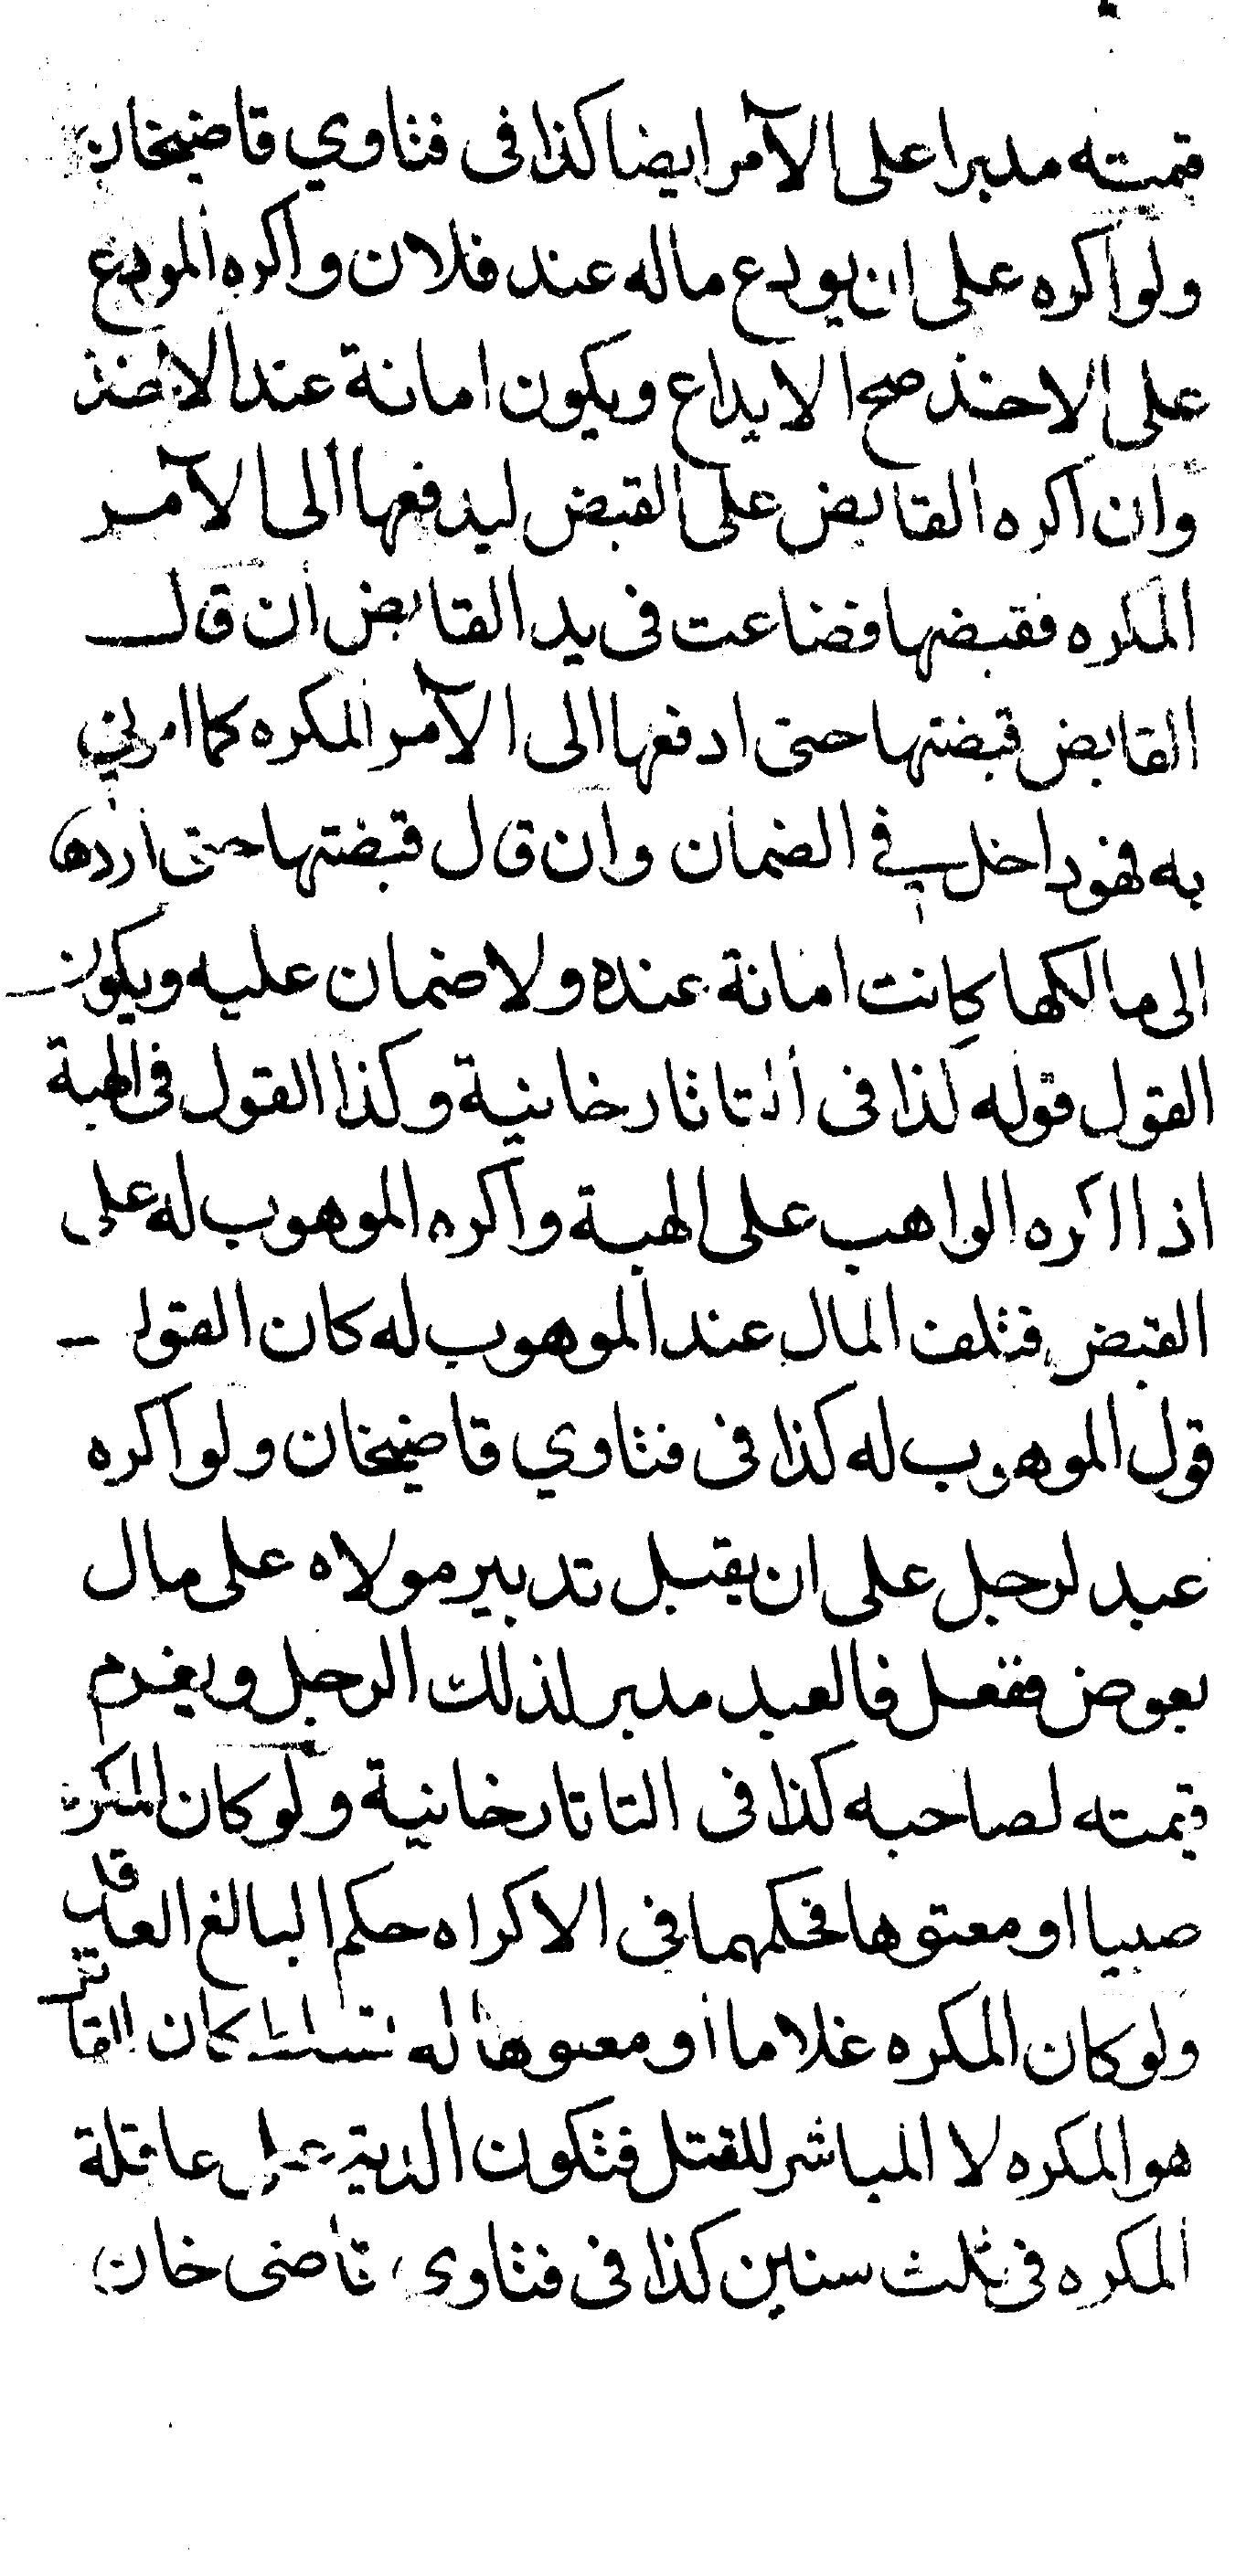 قيمته مدبرا على الآمر ايضا كذا فى فتاوي قاضيخان
ولو اكره على ان يودع ماله عند فلان واكره المودع
على الاخذ صح الايداع ويكون امانة عند الاخذ
وان اكره القابض على القبض ليدفعها الى الآمر
المكره فقبضها فضاعت فى يد القابض ان قال
القابض قبضتها حتى ادفعها الى الآمر المكره كما امرني
به فهو داخل في الضمان وان قال قبضتها حتى اردها
الى مالكها كانت امانة عنده ولا ضمان عليه ويكون
القول قوله كذا فى التاتارخانية وكذا القول فى الهبة
اذا اكره الواهب على الهبة واكره الموهوب له على
القبض فتلف المال عند الموهوب له كان القول
قول الموهوب له كذا فى فتاوي قاضيخان ولو اكره
عبد لرجل على ان يقبل تدبير مولاه على مال
بعوض ففعل فالعبد مدبر لذلك الرجل ويغرم
قيمته لصاحبه كذا فى التاتارخانية ولو كان المكره
صبيا او معتوها فحكمهما فى الاكراه حكم البالغ العاقل
ولو كان المكره غلاما او معتوها له تسلط كان القاتل
هو المكره لا المباشر للقتل فتكون الدية على عاقلة
المكره فى ثلث سنين كذا فى فتاوى قاضى خان